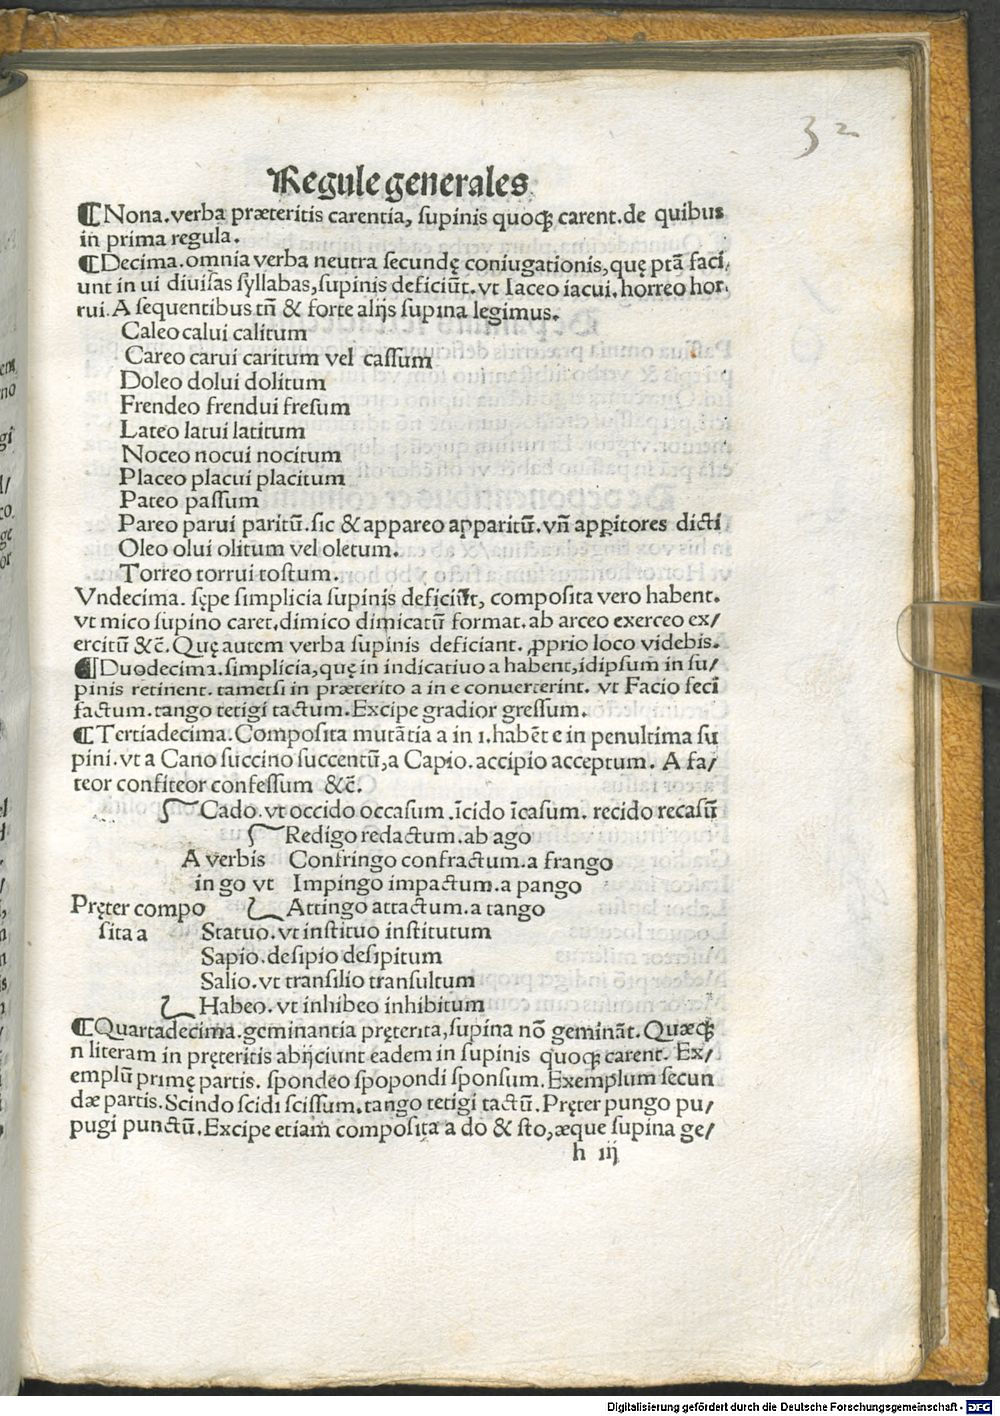 32
Regule generales
¶ Nona. verba præteritis carentia, supinis quoqꝫ carent. de quibus
in prima regula.
¶ Decima. omnia verba neutra secundę coniugationis, quę ptā faci,
unt in ui diuisas syllabas, supinis deficiūt. vt Iaceo iacui. horreo hor,
rui. A sequentibus tñ & forte alijs supina legimus.
Caleo calui calitum
Careo carui caritum vel cassum
Doleo dolui dolitum
Frendeo frendui fresum
Lateo latui latitum
Noceo nocui nocitum
Placeo placui placitum
Pateo passum
Pareo parui paritū. sic & appareo apparitū. vñ appitores dicti
Oleo olui olitum vel oletum.
Torreo torrui tostum.
Vndecima. sępe simplicia supinis deficiūt, composita vero habent.
vt mico supino caret, dimico dimicatū format. ab arceo exerceo ex/
ercitū &c̄. Quę autem verba supinis deficiant. ꝓprio loco videbis.
¶ Duodecima. simplicia, quę in indicatiuo a habent, idipsum in su/
pinis retinent. tametsi in præterito a in e conuerterint. vt Facio feci
factum. tango tetigi tactum. Excipe gradior gressum.
¶ Tertiadecima. Composita mutātia a in ı. habēt e in penultima su
pini. vt a Cano succino succentū, a Capio. accipio acceptum. A fa/
teor confiteor confessum &c̄.
Cado. vt occido occasum. īcido īcasum. recido recasū
Redigo redactum. ab ago
A verbis Confringo confractum. a frango
in go vt Impingo impactum. a pango
Pręter compo Attingo attactum. a tango
sita a Statuo. vt instituo institutum
Sapio. desipio desipitum
Salio. vt transilio transultum
Habeo. vt inhibeo inhibitum
¶ Quartadecima. geminantia pręterita, supina nō gemināt. Quæqꝫ
n literam in pręteritis abijciunt eadem in supinis quoqꝫ carent. Ex/
emplū primę partis. spondeo spopondi sponsum. Exemplum secun
dæ partis. Scindo scidi scissum. tango tetigi tactū. Pręter pungo pu/
pugi punctū. Excipe etiam composita a do & sto, æque supina ge/
h iij
Digitalisierung gefördert durch die Deutsche Forschungsgemeinschaft - DFG